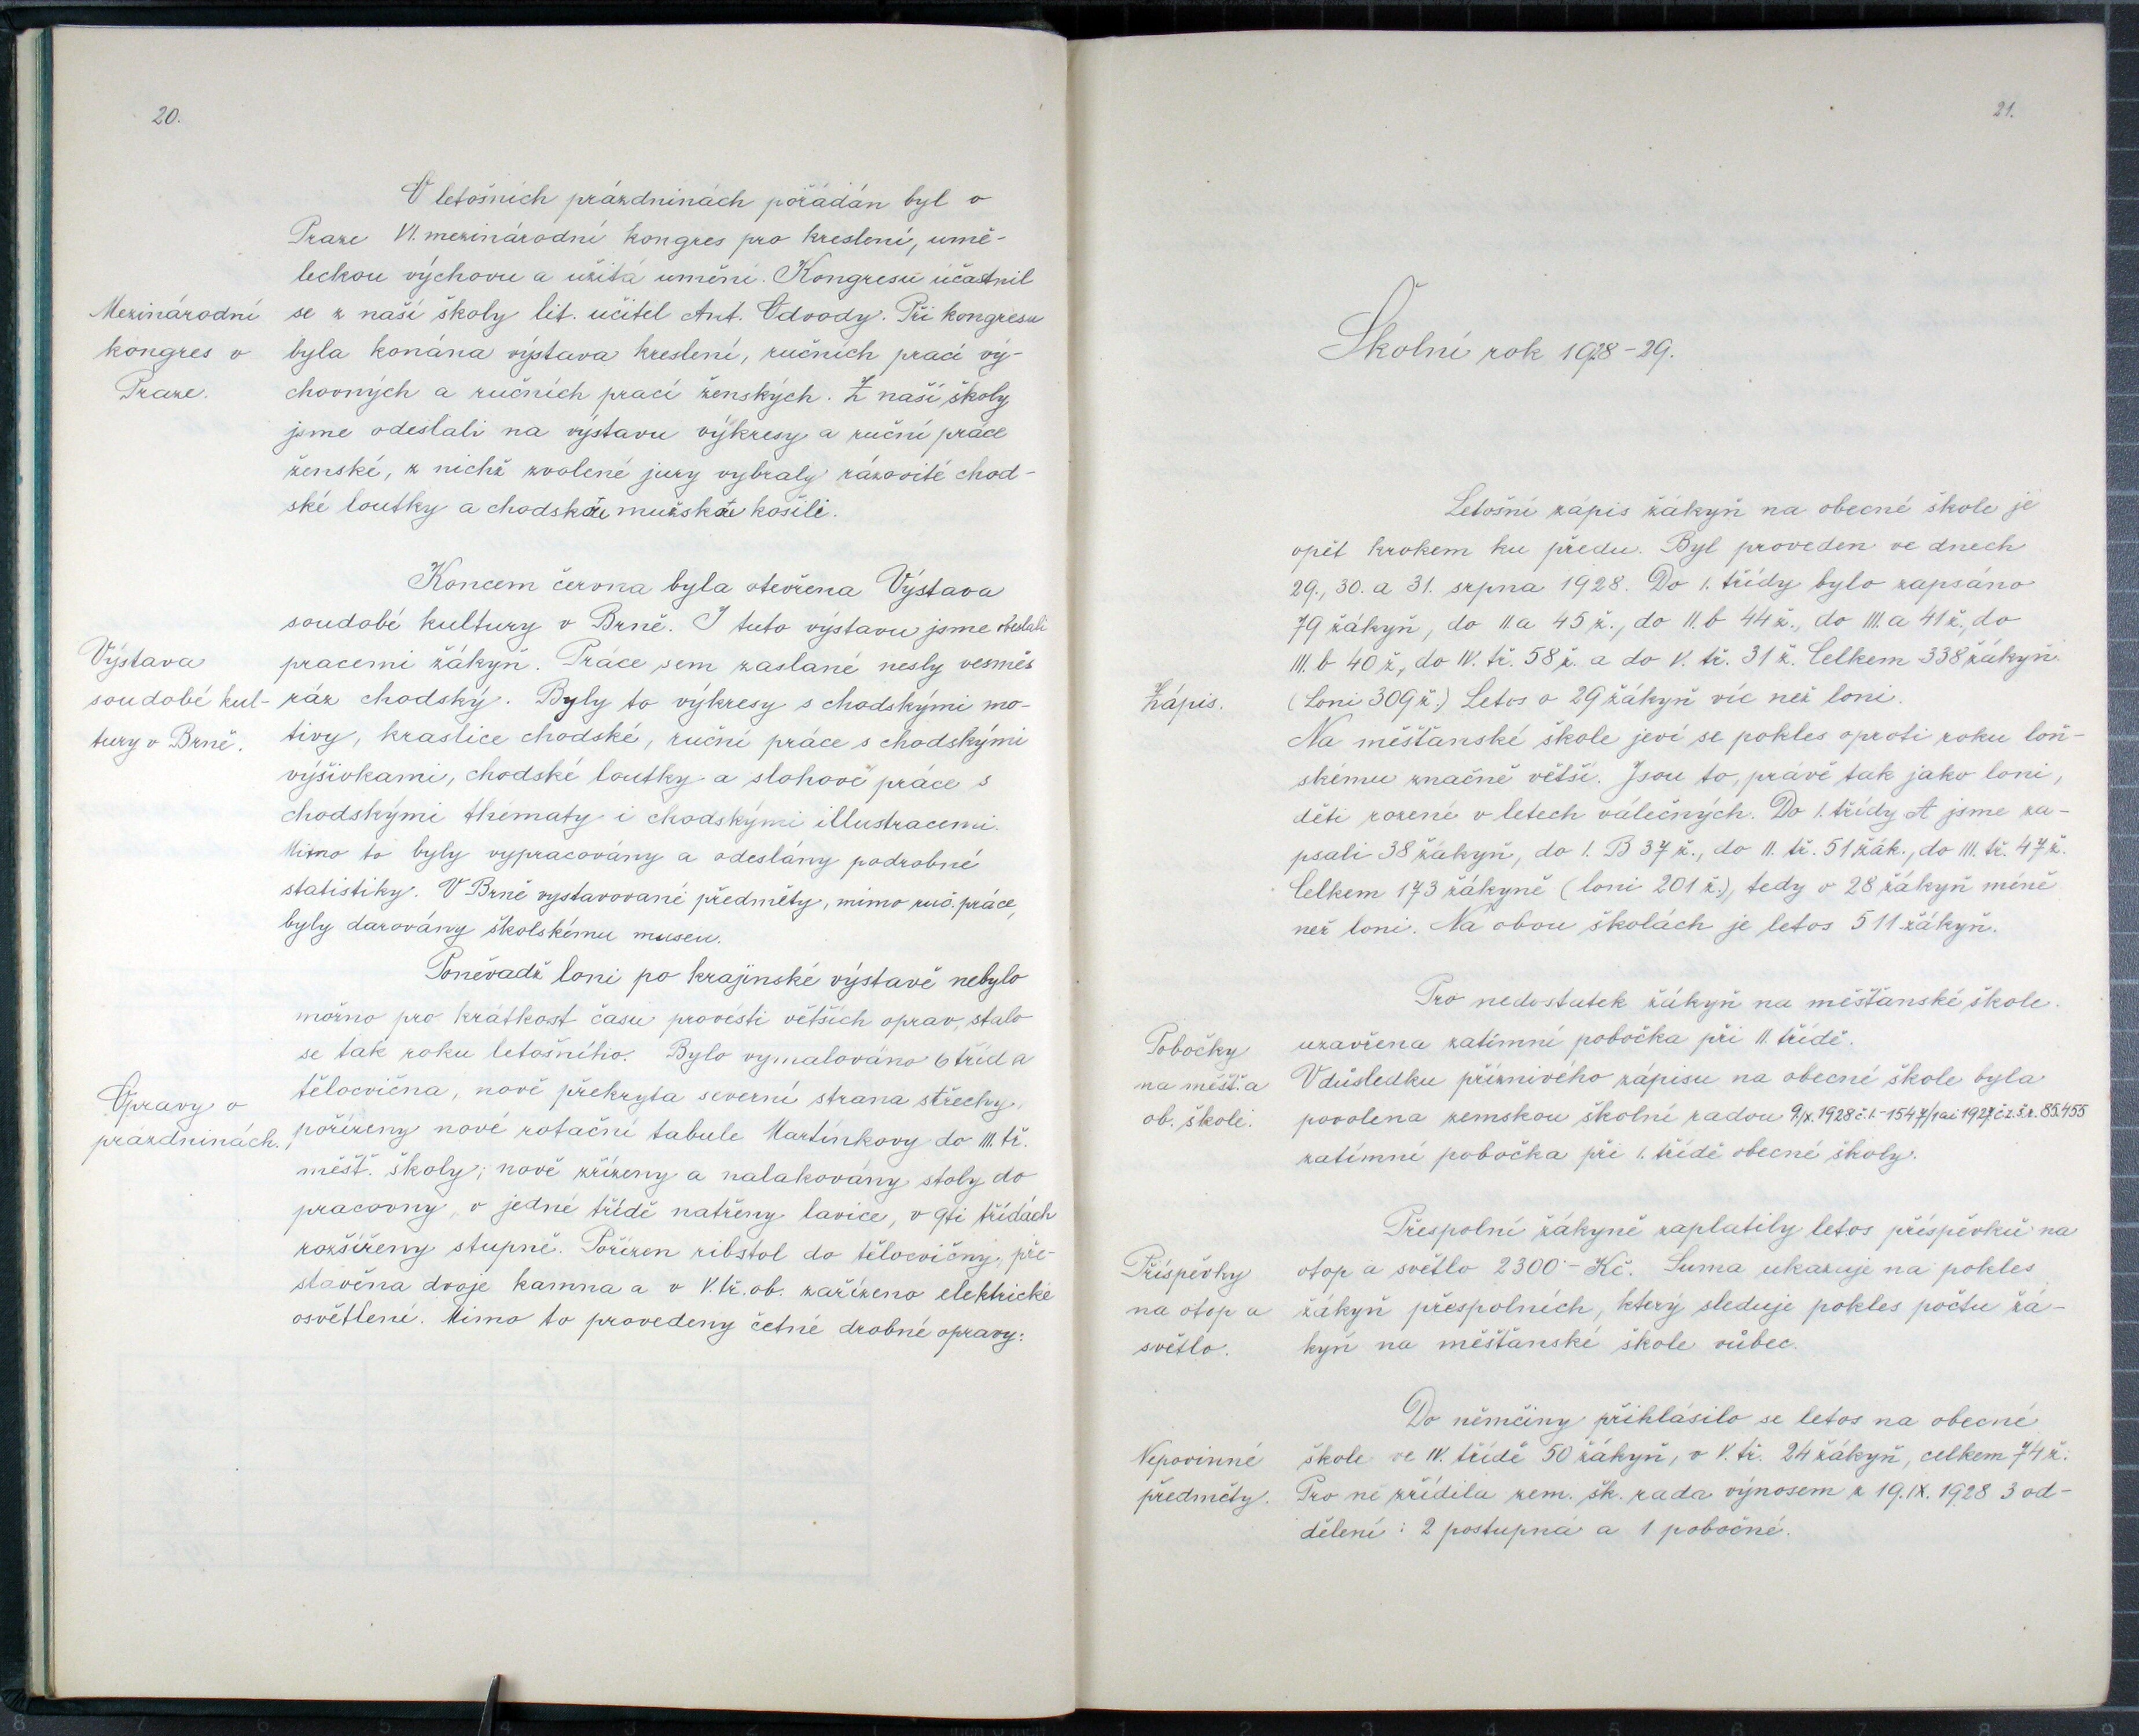 20.
V letošních prázdninách pořádán byl v
Praze VI. mezinárodní kongres pro kreslení, umě-
leckou výchovu a užitá umění. Kongresu účastnil
Mezinárodní
kongres v
Praze.
se z naší školy lit. učitel Ant. Vdovody. Při kongresu
byla konána výstava kreslení, ručních prací vý-
chovných a ručních prací ženských. Z naší školy
jsme odeslali na výstavu výkresy a ruční práce
ženské, z nichž zvolené jury vybraly rázovité chod-
ské loutky a chodskou mužskou košili.
Koncem června byla otevřena Výstava
soudobé kultury v Brně. I tuto výstavu jsme obeslali
Výstava
soudobé kul-
tury v Brně.
pracemi žákyň. Práce sem zaslané nesly vesměs
ráz chodský. Byly to výkresy s chodskými mo-
tivy, kraslice chodské, ruční práce s chodskými
výšivkami, chodské loutky a slohové práce s
chodskými thématy i chodskými illustracemi.
Mimo to byly vypracovány a odeslány podrobné
statistiky. V Brně vystavované předměty, mimo ruč. práce,
byly darovány školskému museu.
Poněvadž loni po krajinské výstavě nebylo
možno pro krátkost času provésti větších oprav, stalo
se tak roku letošního. Bylo vymalováno 6 tříd a
Opravy o
prázdninách.
tělocvična, nově překryta severní strana střechy,
pořízeny nové rotační tabule Martínkovy do III. tř.
měšť. školy; nově zřízeny a nalakovány stoly do
pracovny, v jedné třídě natřeny lavice, v 9ti třídách
rozšířeny stupně. Pořízen ribstol do tělocvičny, pře-
stavěna dvoje kamna a v V. tř. ob. zařízeno elektrické
osvětlení. Mimo to provedeny četné drobné opravy.
21.
Školní rok 1928-29.
Letošní zápis žákyň na obecné škole je
opět krokem ku předu. Byl proveden ve dnech
29., 30. a 31. srpna 1928. Do I. třídy bylo zapsáno
79 žákyň, do II.a 45 ž., do II.b 44 ž., do III.a 41 ž., do
III.b 40 ž., do IV. tř. 58 ž. a do V. tř. 31 ž. Celkem 338 žákyň.
Zápis.
(Loni 309 ž.) Letos o 29 žákyň víc než loni.
Na měšťanské škole jeví se pokles oproti roku loň-
skému značně větší. Jsou to, právě tak jako loni,
děti rozené v letech válečných. Do I. třídy A jsme za-
psali 38 žákyň, do I. B 37 ž., do II. tř. 51 žák., do III. tř. 47 ž.
Celkem 173 žákyně (loni 201 ž.), tedy o 28 žákyň méně
než loni. Na obou školách je letos 511 žákyň.
Pro nedostatek žákyň na měšťanské škole
Pobočky
na měšť. a
ob. škole.
uzavřena zatímní pobočka při II. třídě.
V důsledku příznivého zápisu na obecné škole byla
povolena zemskou školní radou 9/X. 1928 č. I.-1547/5 ai 1927 č. z. š. r. 85.455
zatímní pobočka při I. třídě obecné školy.
Přespolní žákyně zaplatily letos příspěvků na
Příspěvky
na otop a
světlo.
otop a světlo 2300·- Kč. Suma ukazuje na pokles
žákyň přespolních, který sleduje pokles počtu žá-
kyň na měšťanské škole vůbec.
Do němčiny přihlásilo se letos na obecné
Nepovinné
předměty.
škole ve IV. třídě 50 žákyň, v V. tř. 24 žákyň, celkem 74 ž.
Pro ně zřídila zem. šk. rada výnosem z 19. IX. 1928 3 od-
dělení: 2 postupná a 1 pobočné.